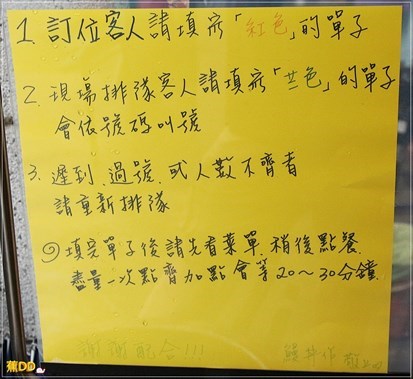 1. 訂位客人請填寫「紅色」的單子
2. 現場排隊客人請填寫「 色」的單子
會依號碼叫號
3. 遲到、過號、或人數不齊者
請重新排隊
填完單子後請先看菜單、稍後點餐、
盡量一次點齊加點會等20~30分鐘
謝謝配合!!!
丼作
蕉DD